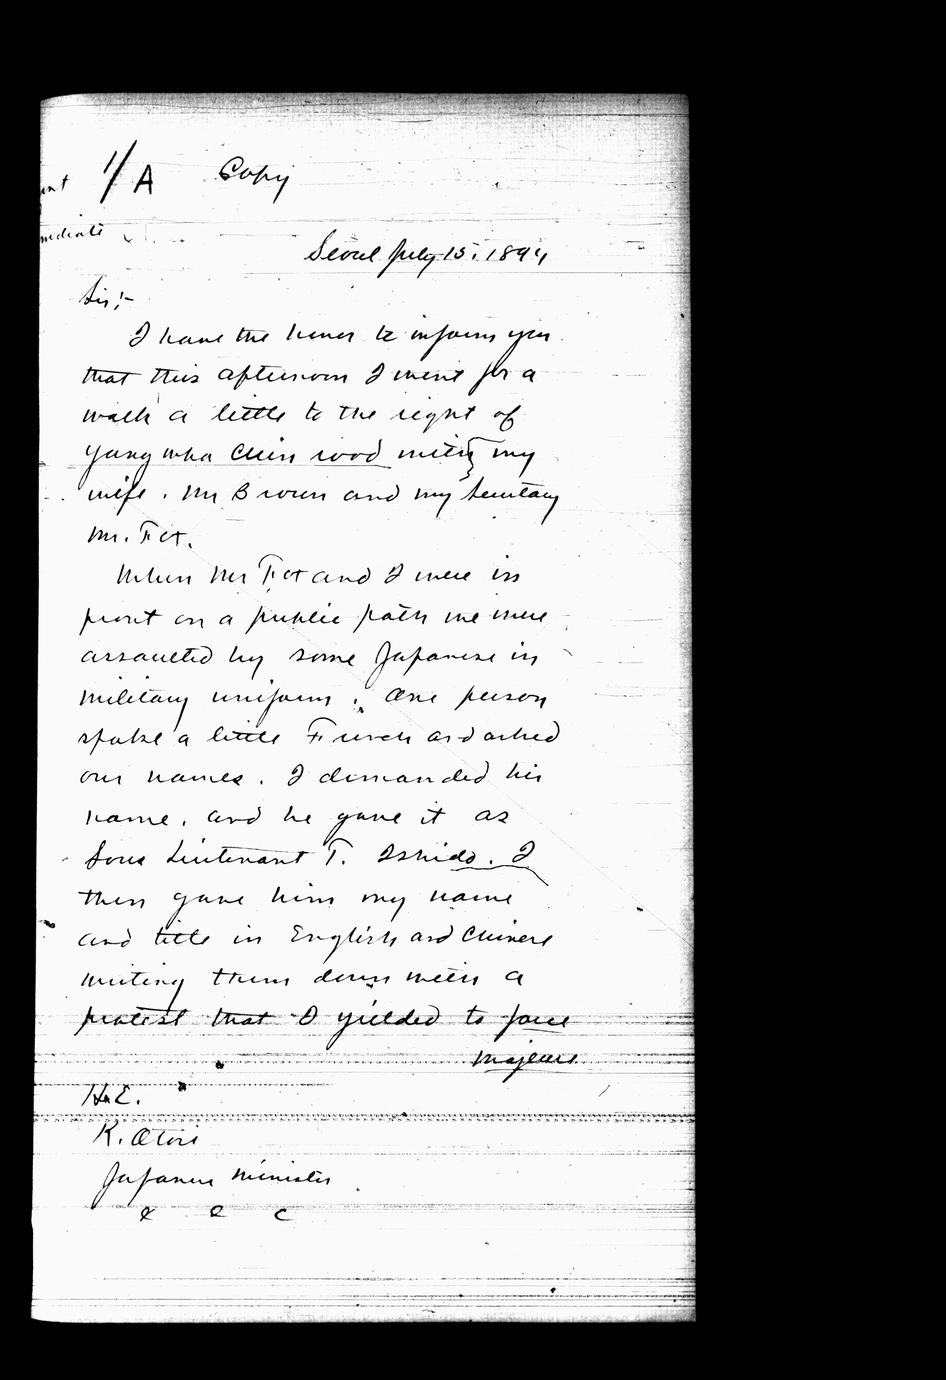 1/A Copy
Seoul July 15, 1894
Sir;-
I have the honor to inform you
that this afternoon I went for a
walk a little to the right of
Yang wha Chin road with my
wife, Mr Brown and my Secretary
Mr. Fox.
When Mr Fox and I were in
front on a public path we were
assaulted by some Japanese in
military uniform. One person
spoke a little French and asked
our names. I demanded his
name, and he gave it as
Sous Lieutenant T. Ishido. I
then gave him my name
and title in English and Chinese
writing them down with a
protest that I yielded to force
majeure
H.E.
K. Otori
Japanese Minister
& e c